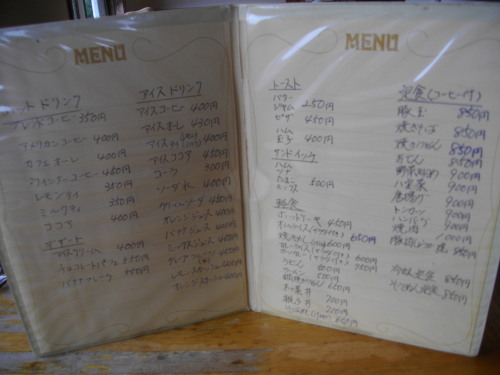 MENU
ホット ドリンク
ブレンドコーヒー 350円
アメリカンコーヒー 400円
カフェオーレ 400円
ウインナーコーヒー 450円
レモンティ 350円
ミルクティ 350円
ココア 400円
デザート
アイスクリーム 400円
チョコレートパフェ 550円
バナナクレープ 350円
アイスドリンク
アイスコーヒー 400円
アイスオーレ 430円
アイスティ 400円
アイスココア 450円
コーラ 300円
ソーダ水 400円
クリームソーダ 450円
オレンジジュース 400円
バナナジュース 400円
ミックスジュース 400円
グレープフルーツ 400円
レモンスカッシュ 400円
オレンジスカッシュ 400円
MENU
トースト
バター
ジャム 250円
ピザ 450円
ハム
玉子 400円
サンドイッチ
ハム
ツナ
たまご
ミックス 500円
軽食
ホットケーキ 450円
オムライス 650円
焼めし 600円 650円
カレーライス 600円
うどん 500円
ラーメン
木の葉丼 700円
親子丼 700円
定食(コーヒー付)
豚玉 850円
焼きそば 850円
焼うどん 850円
おでん 850円
野菜いため 900円
八宝菜 900円
唐揚げ 900円
トンカツ 900円
ハンバーグ 900円
焼肉 1000円
豚肉しょうが焼 850円
冷めん定食 850円
そうめん定食 850円